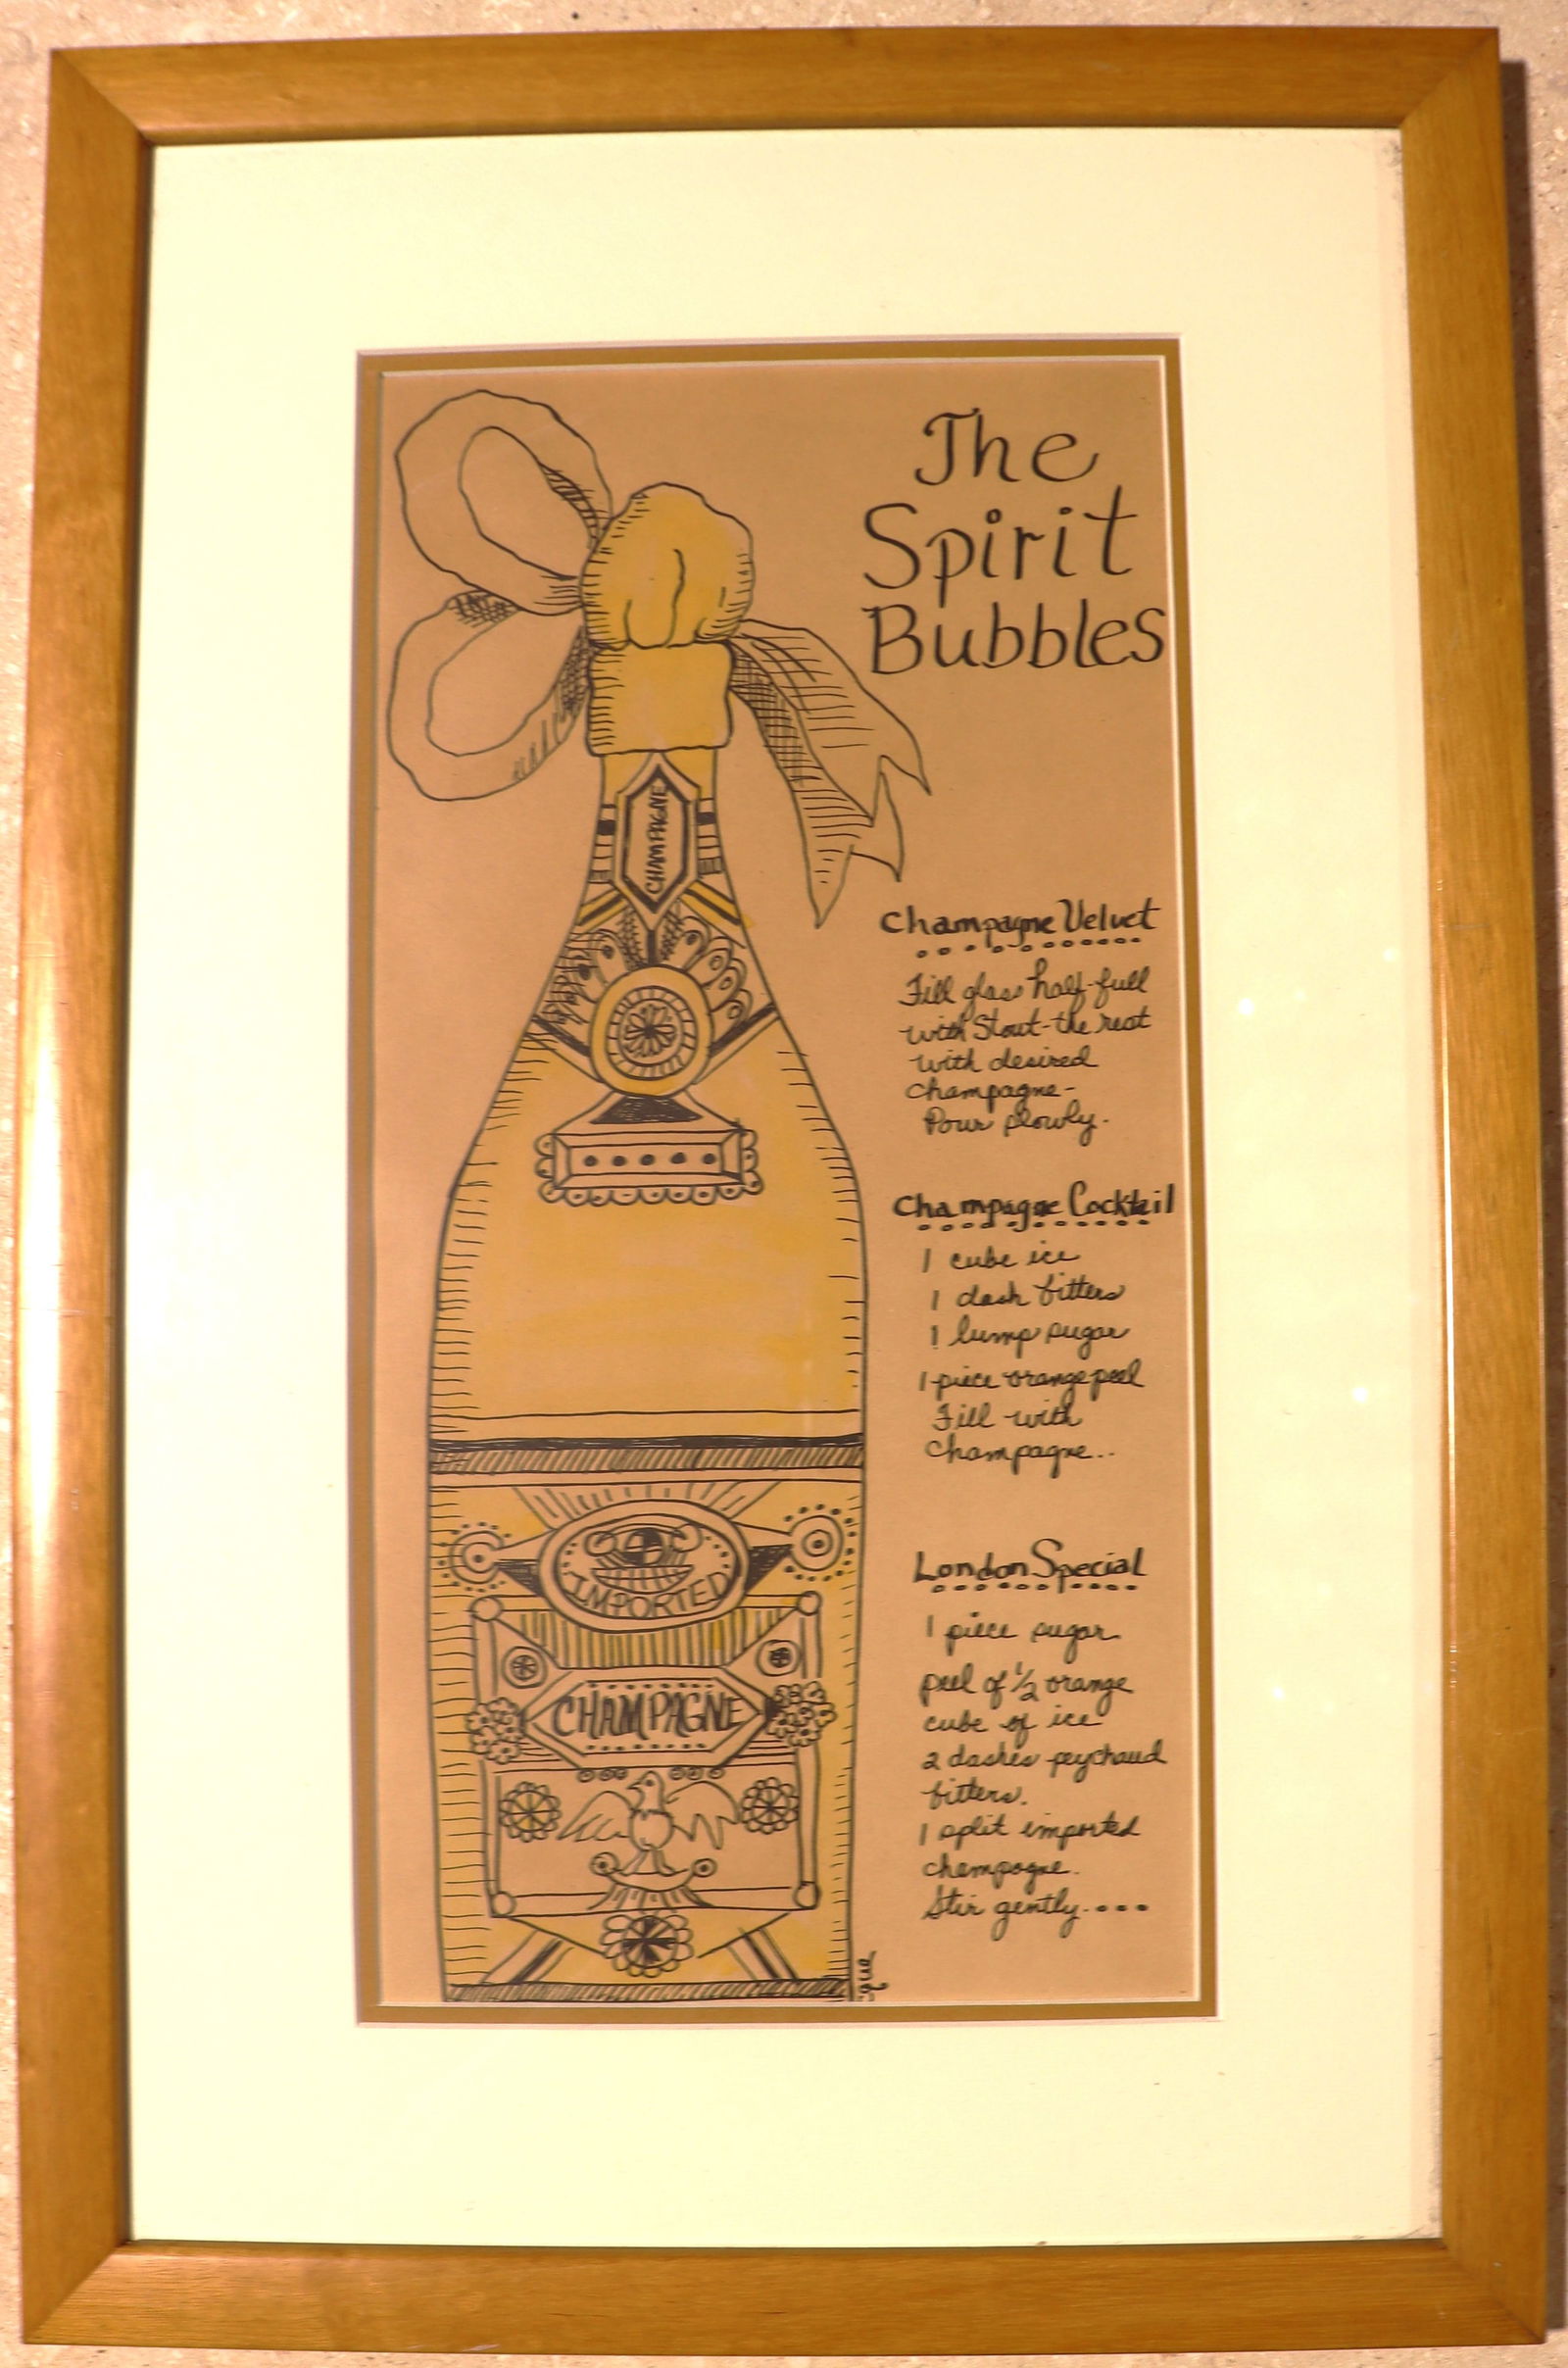 The
Spirit
Bubbles
CHAMPAGNE
Champagne Velvet
Fill glass half-full
with Stout-the rest
with desired
Champagne-
Pour slowly.
Champagne Cocktail
1 cube ice
1 dash bitters
1 lump sugar
1 piece orange peel
Fill with
Champagne..
London Special
1 piece sugar
peel of 1/2 orange
cube of ice
2 dashes peychaud
bitters.
1 split imported
champagne.
Stir gently....
IMPORTED
CHAMPAGNE